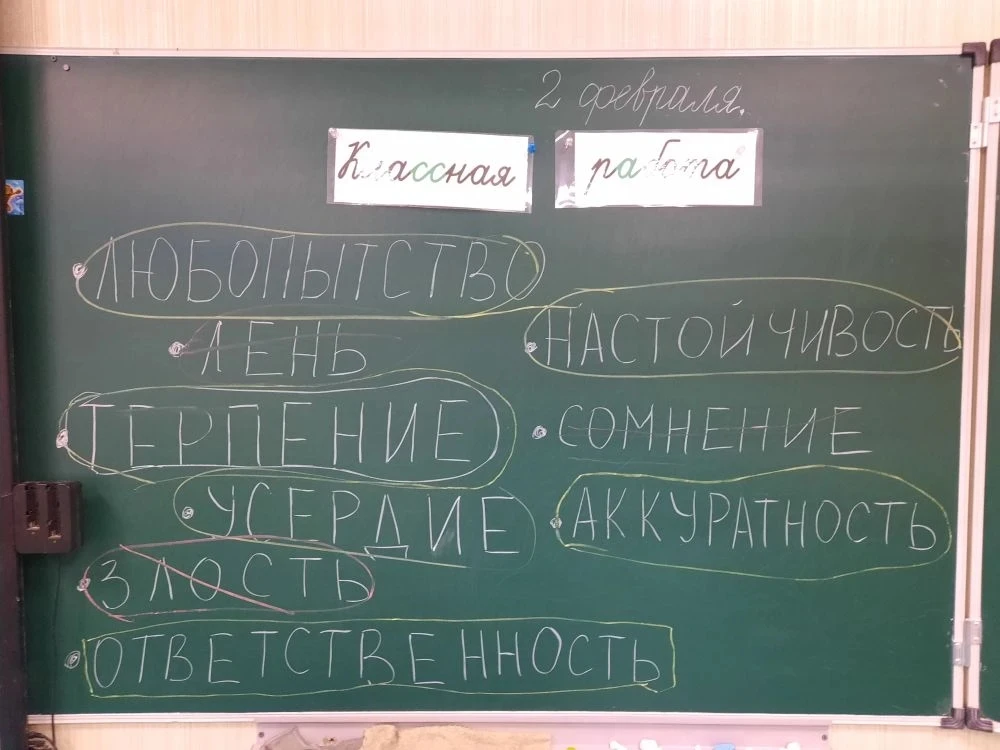 2 февраля.
Классная работа
ЛЮБОПЫТСТВО
НАСТОЙЧИВОСТЬ
ЛЕНЬ
ТЕРПЕНИЕ
СОМНЕНИЕ
УСЕРДИЕ
АККУРАТНОСТЬ
ЗЛОСТЬ
ОТВЕТСТВЕННОСТЬ